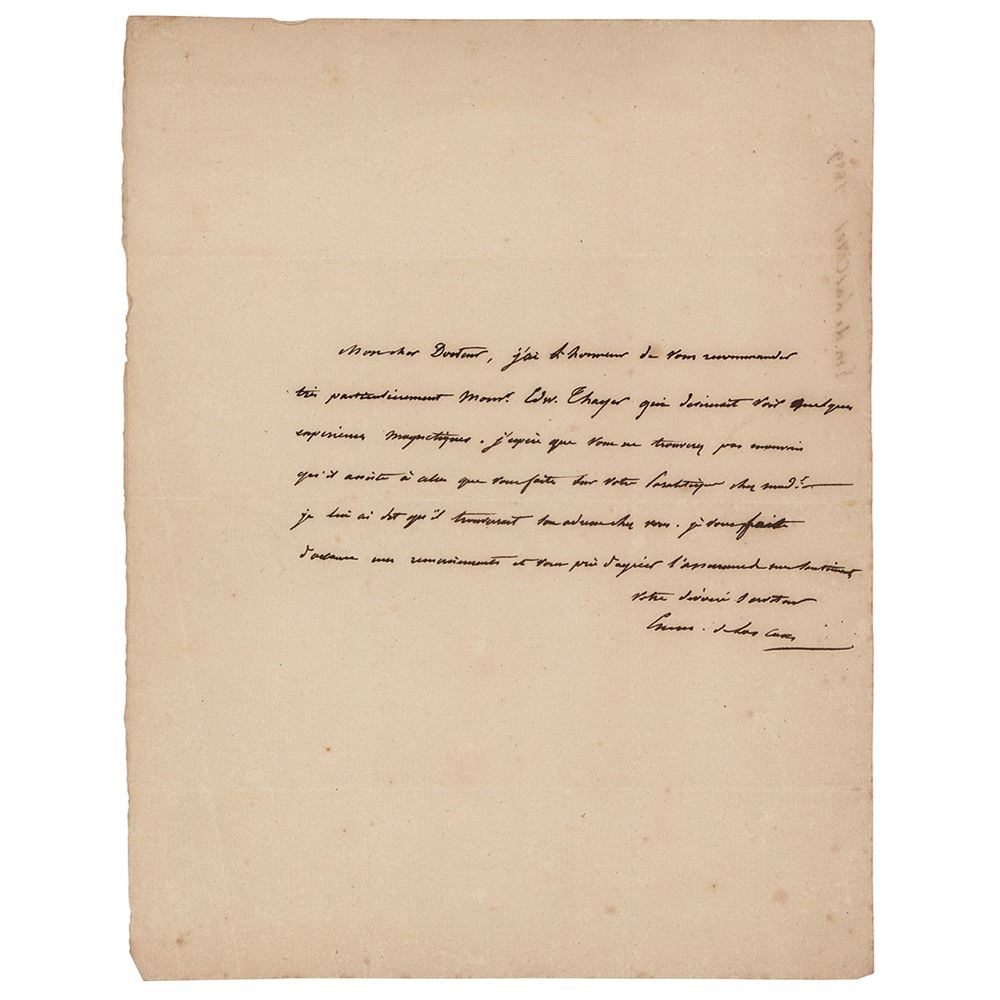 Mon cher Docteur, j'ai l'honneur de vous recommander
très particulièrement Monsr. Edw. Thayer qui desirerait voir quelques
expériences magnetiques. j'espère que vous ne trouverez pas mauvais
qu'il assiste à celles que vous faites sur votre Paralitique chez mad.e
je lui ai dit qu'il trouverait son adresse chez vous. je vous fait
d'avance mes remerciements et vous prie d'agréer l'assurance de mes sentimens
votre dévoué serviteur
Emm. de Las Cases